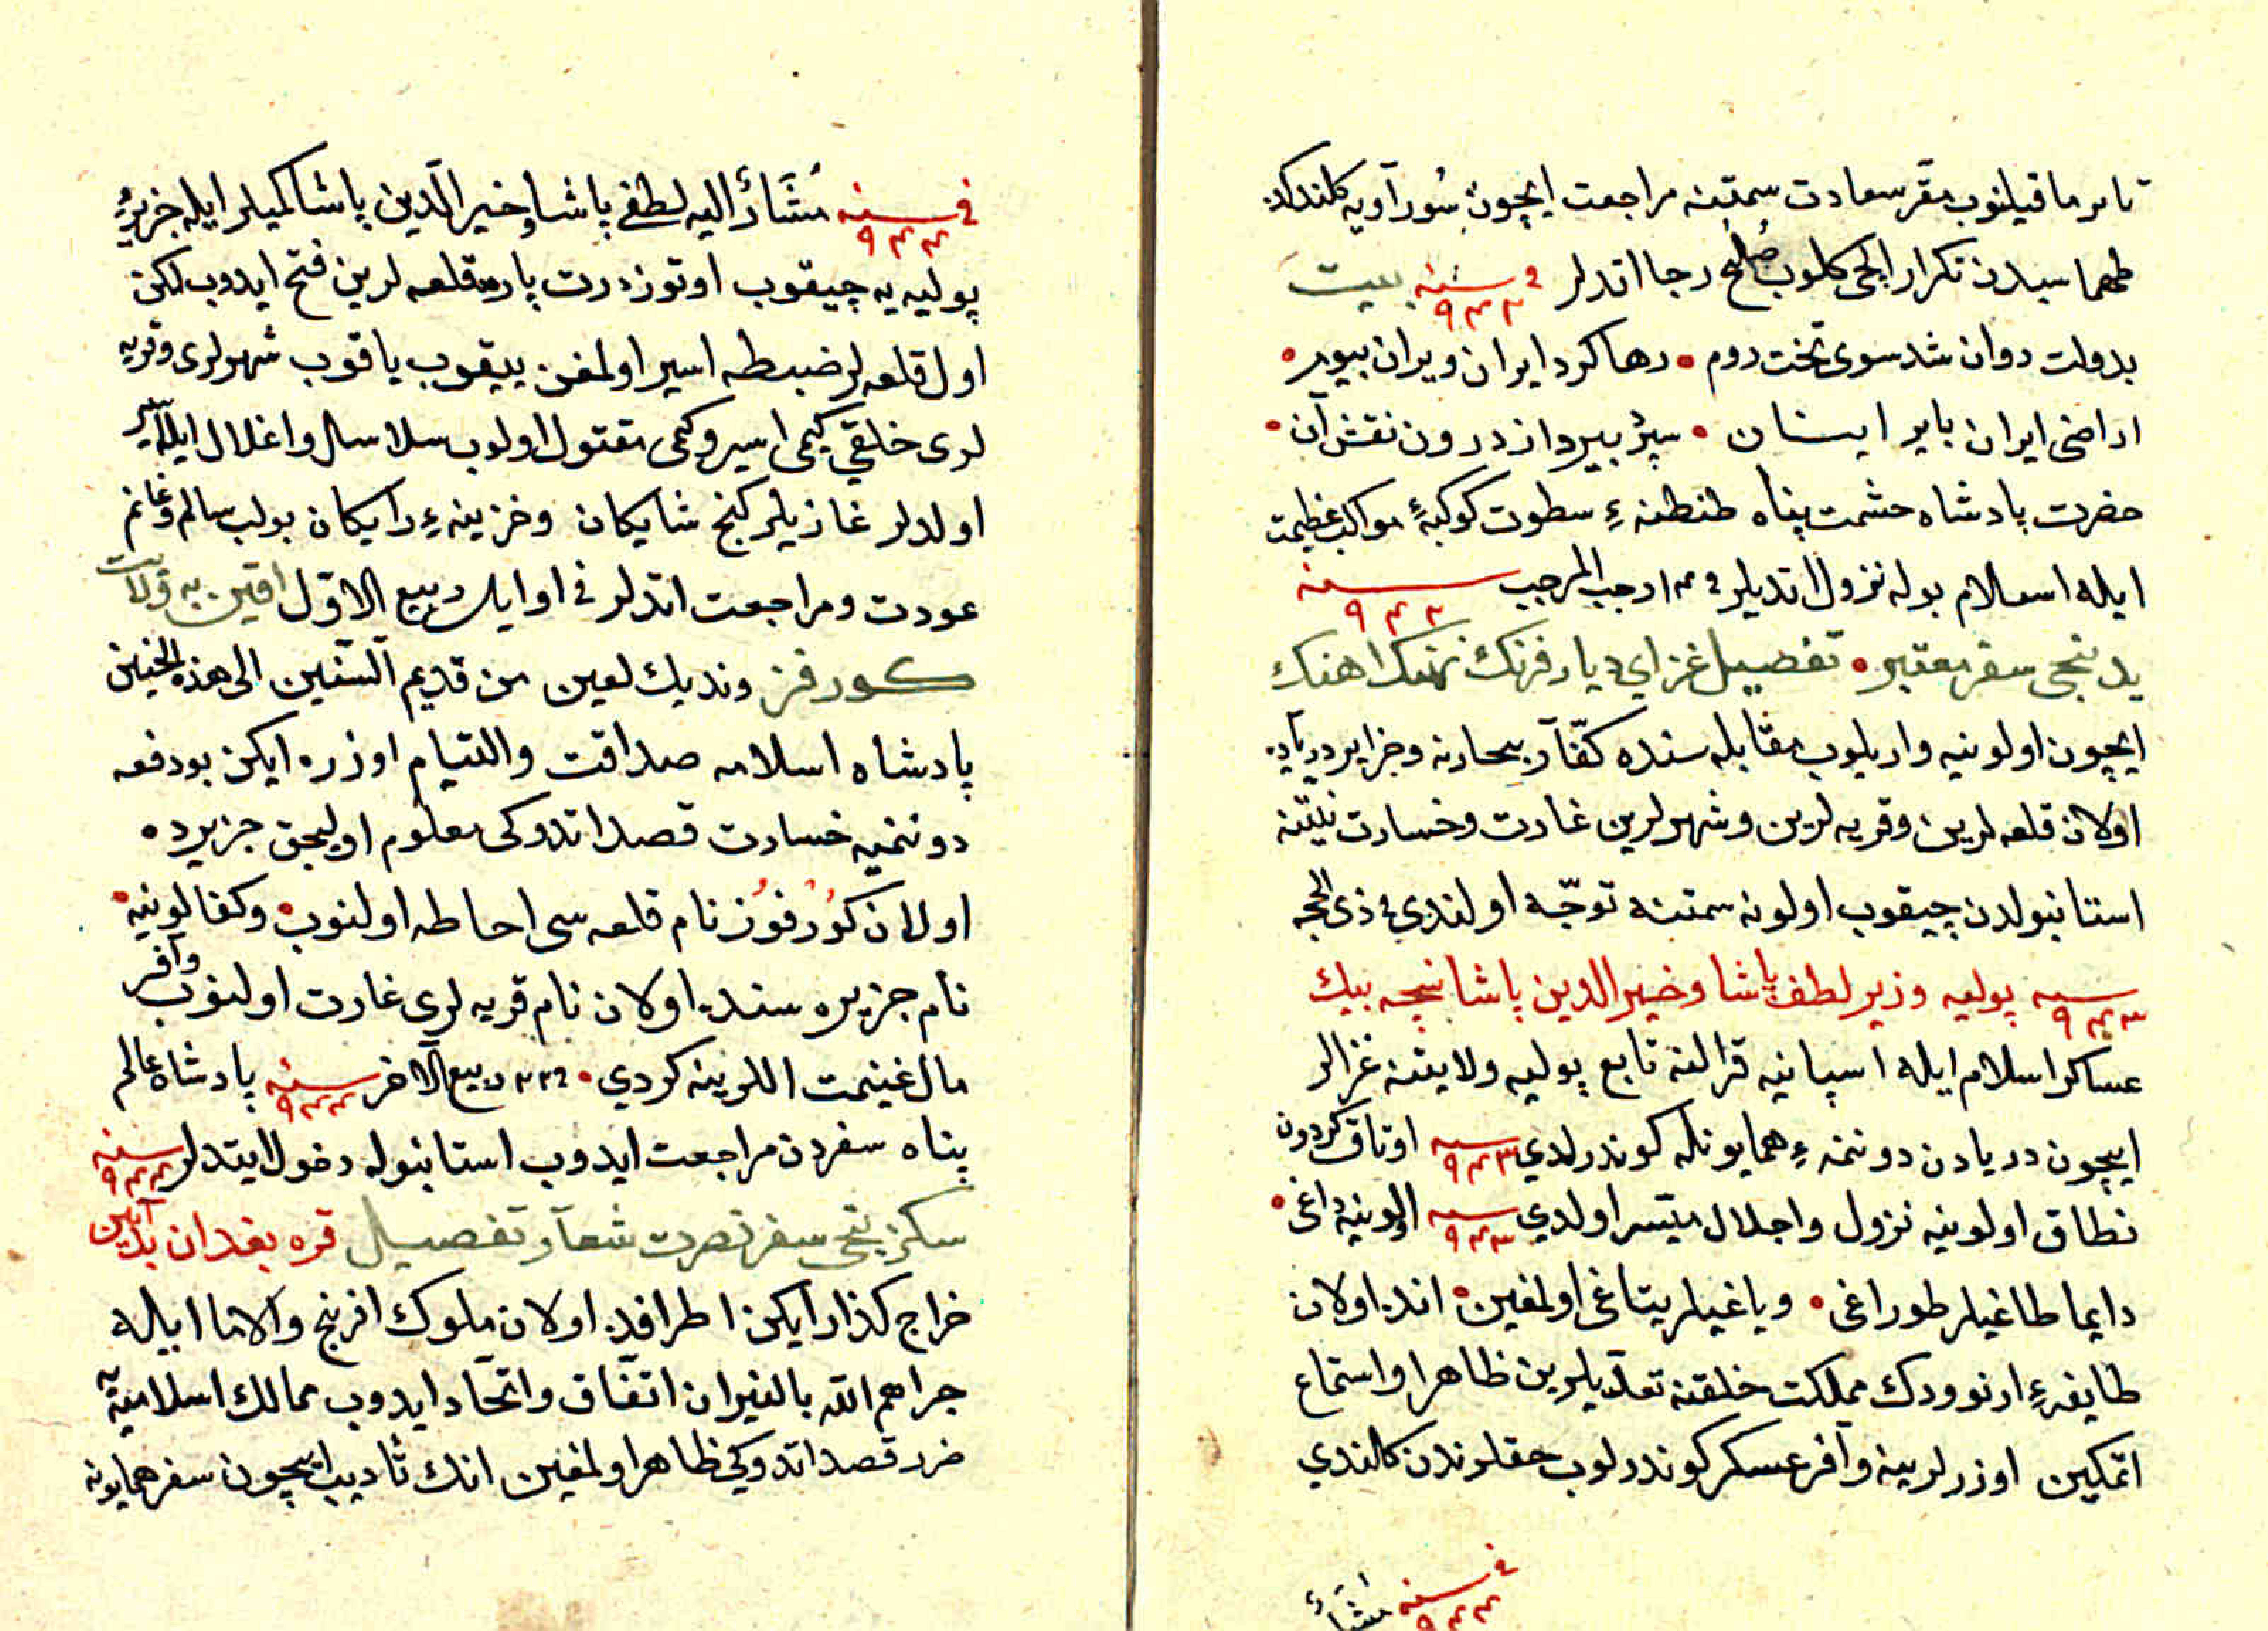 تارما قیلنوب مقر سعادت سمتنه مراجعت ایچون سور آویه کلندکده
طهماسبدن تکرار ایلچی کلوب صلح رجا اتدلر فی سنه ٩٤٢ بیت
بدولت دوان شد سوی تخت روم • رها کرد ایران ویران ببوم •
اراضی ایران بایر ایستان • سپر بیرداز درون نقش آن •
حضرت پادشاه حشمت پناه طنطنهء سطوت کوکبهء مواکب عظیمت
ایله اسلام بوله نزول اتدیلر فی ١٤ رجب المرجب سنه ٩٤٢
یدنجی سفر معتبر • تفصیل غزای دیار فرنك نهنك اهنك
ایچون اولونیه واریلوب مقابله سنده کفار بحارنه وجزایر دریاده
اولان قلعه لرین وقریه لرین وشهرلرین غارت وخسارت نیتنه
استانبولدن چیقوب اولونه سمتنه توجه اولندی فی ذی الحجه
سنه ٩٤٣ پولیه وزیر لطفی پاشا وخیر الدین پاشا نیجه بیك
عساکر اسلام ایله اسپانیه قرالنه تابع پولیه ولایتنه غزالر
ایچون دریادن دوننمهء همایونله کوندرلدی سنه ٩٤٣ اوتاق کردون
نطاق اولونیه نزول واجلال میسر اولدی سنه ٩٤٣ اولونیه داغی •
دایما طاغیلر طوراغی • ویاغیلر یتاغی اولمغین • انده اولان
طایفهء ارنوودك مملکت خلقنه تعدیلرین ظاهرا واستماع
اتمکین اوزرلرینه وافر عسکر کوندرلوب حقلرندن کلندی
فی سنه ٩٤٤ مشار
فی سنه ٩٤٤ مشار الیه لطفی پاشا وخیر الدین پاشا کمیلر ایله جزیرهء
پولیه یه چیقوب اوتوز درت پاره قلعه لرین فتح ایدوب لکن
اول قلعه لر ضبطه اسیر اولمغن ییقوب یاقوب شهرلری وقریه
لری خلقی کیمی اسیر وکمی مقتول اولوب سلاسل واغلال ایله اسیر
اولدلر غازیلر کنج شایکان وخزینهء رایکان بولب سالم وغانم
عودت ومراجعت اتدلر فی اوایل ربیع الاول اقین به ولایت
کورفز وندیك لعین من قدیم السنین الی هذه الحین
پادشاه اسلامه صداقت والتیام اوزره ایکن بودفعه
دوننمیه خسارت قصد اتدوکی معلوم اولیجق جزیرده
اولان کورفوز نام قلعه سی احاطه اولنوب • وکفالونیه •
نام جزیره سنده اولان نام قریه لری غارت اولنوب وافر
مال غنیمت اللرینه کردی • فی ٢٣ ربیع الاخر سنه ٩٤٤ پادشاه عالم
پناه سفردن مراجعت ایدوب استانبوله دخول ایتدلر سنه ٩٤٤
سکزنجی سفر نصرت شعار تفصیل قره بغدان بدایین
خراج کذار ایکن اطرافده اولان ملوك افرنج والاما ایله
جراهم الله بالنیران اتفاق واتحاد ایدوب ممالك اسلامیه یه
ضرر قصد اتدوکی ظاهر اولمغین انك تأدیب ایچون سفر همایونه